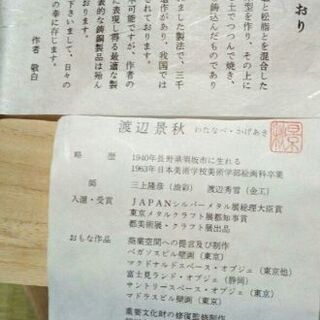 おり
と松脂とを混合した
型を作り、その上に
土でつつんで焼き、
鋳込んだものであり
ました製法で、三千
作があり、我国では
されております。
不可能ですが、作者の
に表現し得る最適な製
表的な鋳銅製品は殆ん
おります。
下さいまして、日々の
の幸甚に存じます。
作者 敬白
渡辺景秋 わたなべ・かげあき
略歴 1940年長岡県須坂市に生れる
1963年日本美術学校美術学部絵画科卒業
師 三上隆彦(油彩) 渡辺秀雪(金工)
入選・受賞 JAPANシルバーメタル展総理大臣賞
東京メタルクラフト展都知事賞
都美術展・クラフト展出品
おもな作品 商業空間への提言及び制作
ペガソスビル壁画(東京)
マクドナルドスペース・オブジェ(東京他)
富士見ランド・オブジェ(静岡)
サントリースペース・オブジェ(東京)
マドラスビル壁画(東京)
重要文化財の修復監修制作